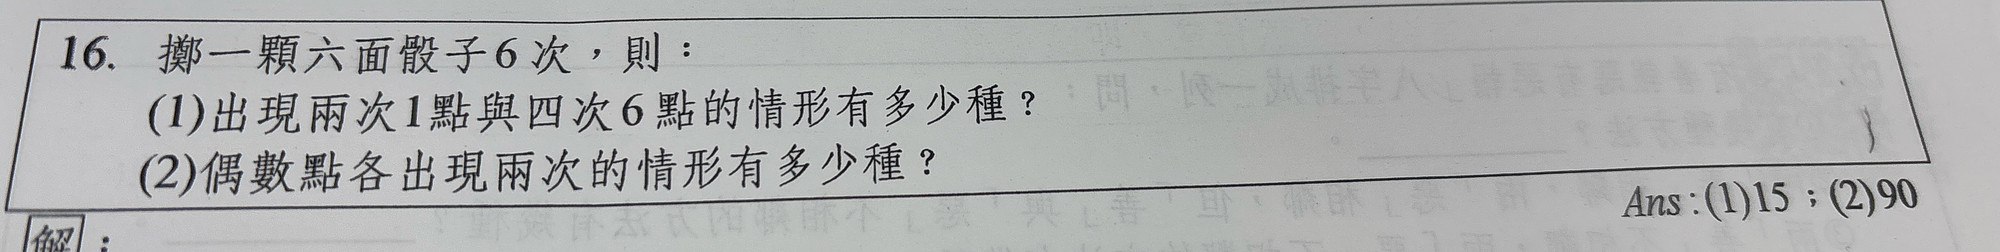 16. 擲一顆六面骰子6次，則：
(1)出現兩次1點與四次6點的情形有多少種？
(2)偶數點各出現兩次的情形有多少種？
Ans：(1)15；(2)90
解：